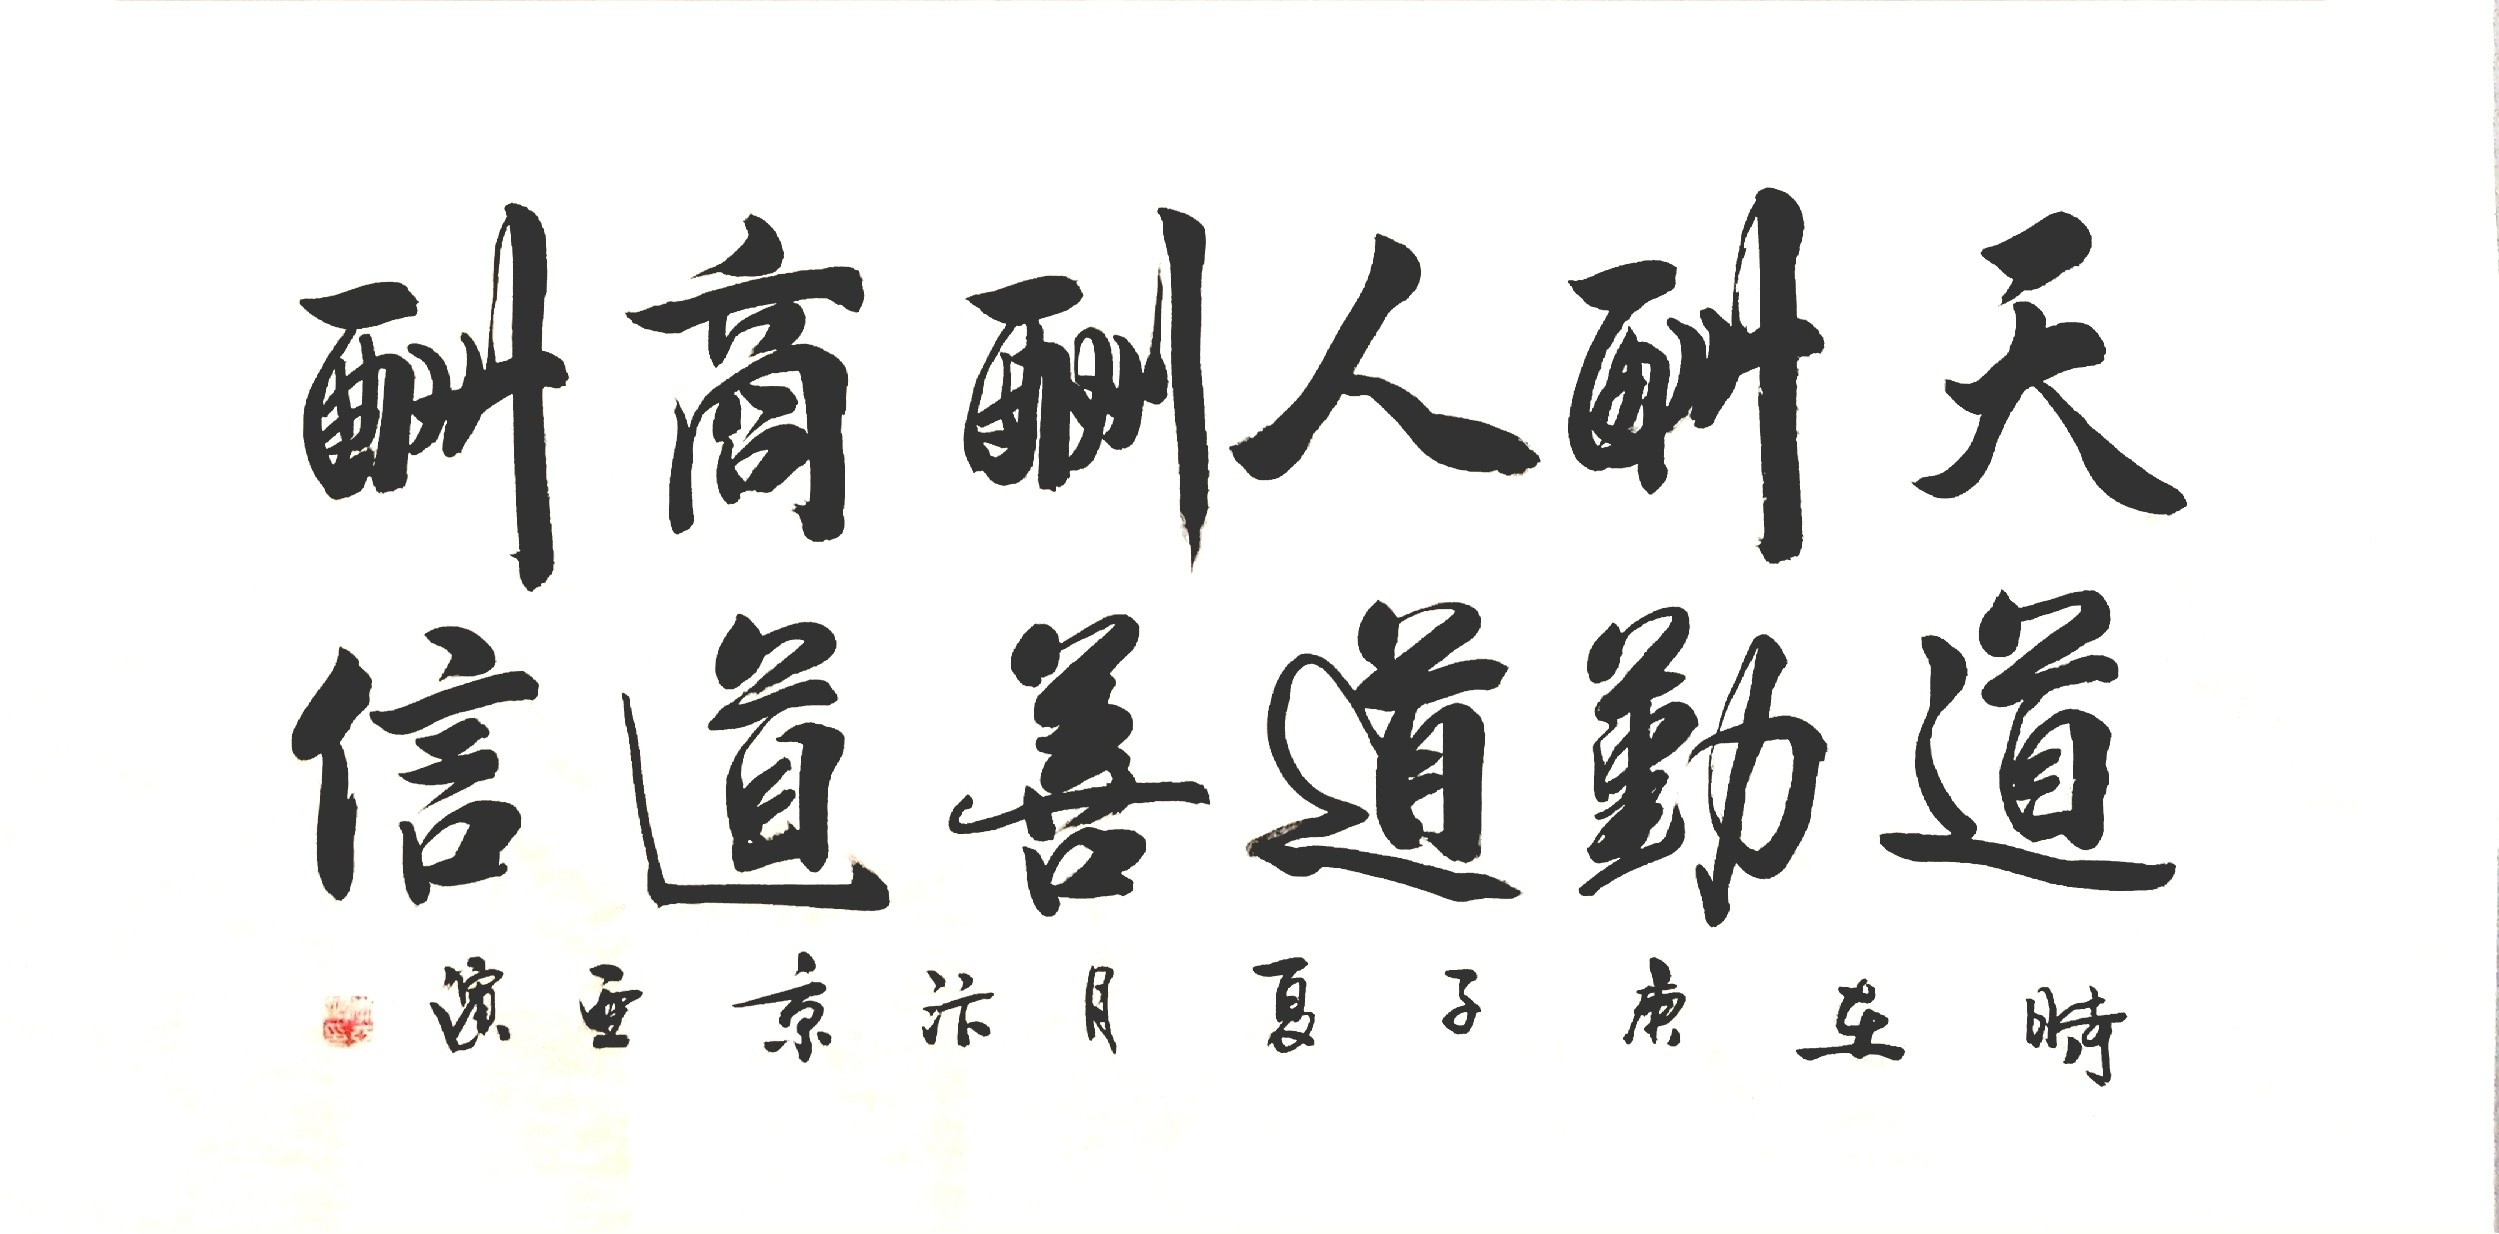 天道
酬勤
人道
酬善
商道
酬信
時庚子夏月汴京亞